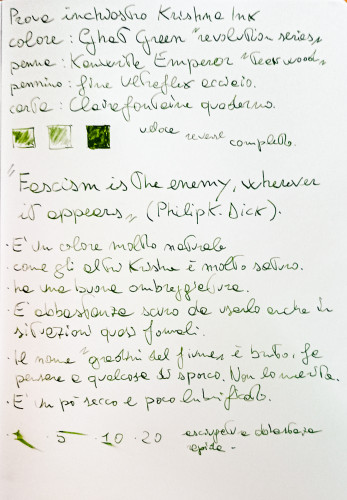 Prova inchiostro Krishna Ink
colore: Ghat Green "revolution series"
penna: Kanwrite Emperor "teak wood"
pennino: fine Ultraflex acciaio.
carta: Clairefontaine quaderno.
veloce reverse completo.
"Fascism is the enemy, wherever
it appears" (Philip K. Dick).
· E' un colore molto naturale
· come gli altri Krishna è molto saturo.
· ha una buona ombreggiatura.
· E' abbastanza scuro da usarlo anche in
situazioni quasi formali.
· il nome "gradini del fiume" è brutto, fa
pensare a qualcosa di sporco. Non lo merita.
· E' un pò secco e poco lubrificato.
· 5 · 10 · 20 asciugatura abbastanza
rapida.